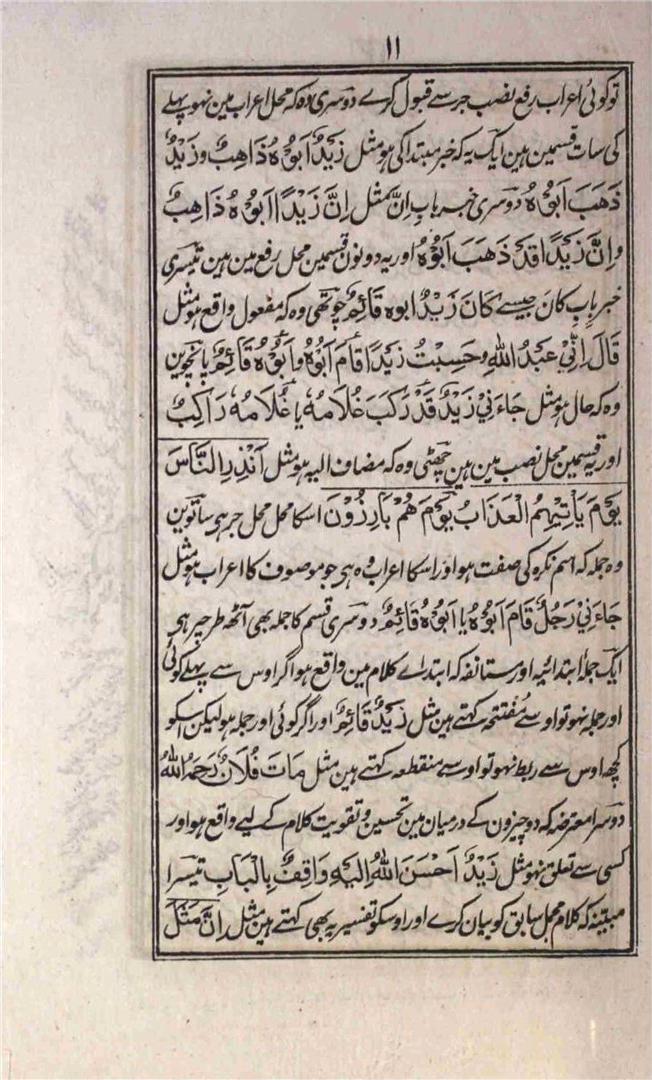 ۱۱
تو کوئی اعراب رفع نصب جر سے قبول کرے دوسری وہ کہ محل اعراب مین نہو پہلے
کی سات قسمین ہین ایک یہ کہ خبر مبتدا کی ہو مثل زَیْدٌ اَبُوْہُ ذَاهِبٌ و زَیْدٌ
ذَهَبَ اَبُوْہُ دوسری خبر باب اِنَّ مثل اِنَّ زَیْدًا اَبُوْہُ ذَاهِبٌ
و اِنَّ زَیْدًا قَدْ ذَهَبَ اَبُوْہُ اور یہ دونون قسمین محل رفع مین ہین تیسری
خبر باب کان جیسے کَانَ زَیْدٌ ابوہ قَائِمٌ چوتھی وہ کہ مفعول واقع ہو مثل
قَالَ اِنِّیْ عَبْدُ اللّٰهِ و حَسِبْتُ زَیْدًا قَامَ اَبُوْہُ و اَبُوْہُ قَائِمٌ پانچوین
وہ کہ حال ہو مثل جَاءَنِیْ زَیْدٌ قَدْ رَکِبَ غُلَامُهٗ یا غُلَامُهٗ رَاکِبٌ
اور یہ قسمین محل نصب مین ہین چھٹی وہ کہ مضاف الیہ ہو مثل اَنْذِرِ النَّاسَ
یَوْمَ یَأْتِیْهِمُ الْعَذَابُ یَوْمَ هُمْ بَارِزُوْنَ اسکا محل محل جر ہی ساتوین
وہ جملہ کہ اسم نکرہ کی صفت ہو اور اسکا اعراب وہ ہی جو موصوف کا اعراب ہو مثل
جَاءَنِیْ رَجُلٌ قَامَ اَبُوْہُ یا اَبُوْہُ قَائِمٌ دوسری قسم کا جملہ بھی آٹھ طرحپر ہی
ایک جملہ ابتدائیہ اور مستانفہ کہ ابتدائے کلام مین واقع ہو اگر اوس سے پہلے کوئی
اور جملہ نہو تو اوسے مُفتتحہ کہتے ہین مثل زَیْدٌ قَائِمٌ اور اگر کوئی اور جملہ ہو لیکن اسکو
کچھ اوس سے ربط نہو تو اوسے منقطعہ کہتے ہین مثل مَاتَ فُلَانٌ رَحِمَهُ اللّٰهُ
دوسرا معترضہ کہ دو چیزون کے درمیان مین تحسین و تقویت کلام کے لیے واقع ہو اور
کسی سے تعلق نہو مثل زَیْدٌ اَحْسَنَ اللّٰهُ اِلَیْهِ وَاقِفٌ بِالْبَابِ تیسرا
مبیّنہ کہ کلام مجمل سابق کو بیان کرے اور اوسکو تفسیریہ بھی کہتے ہین مثل اِنَّ مَثَلَ